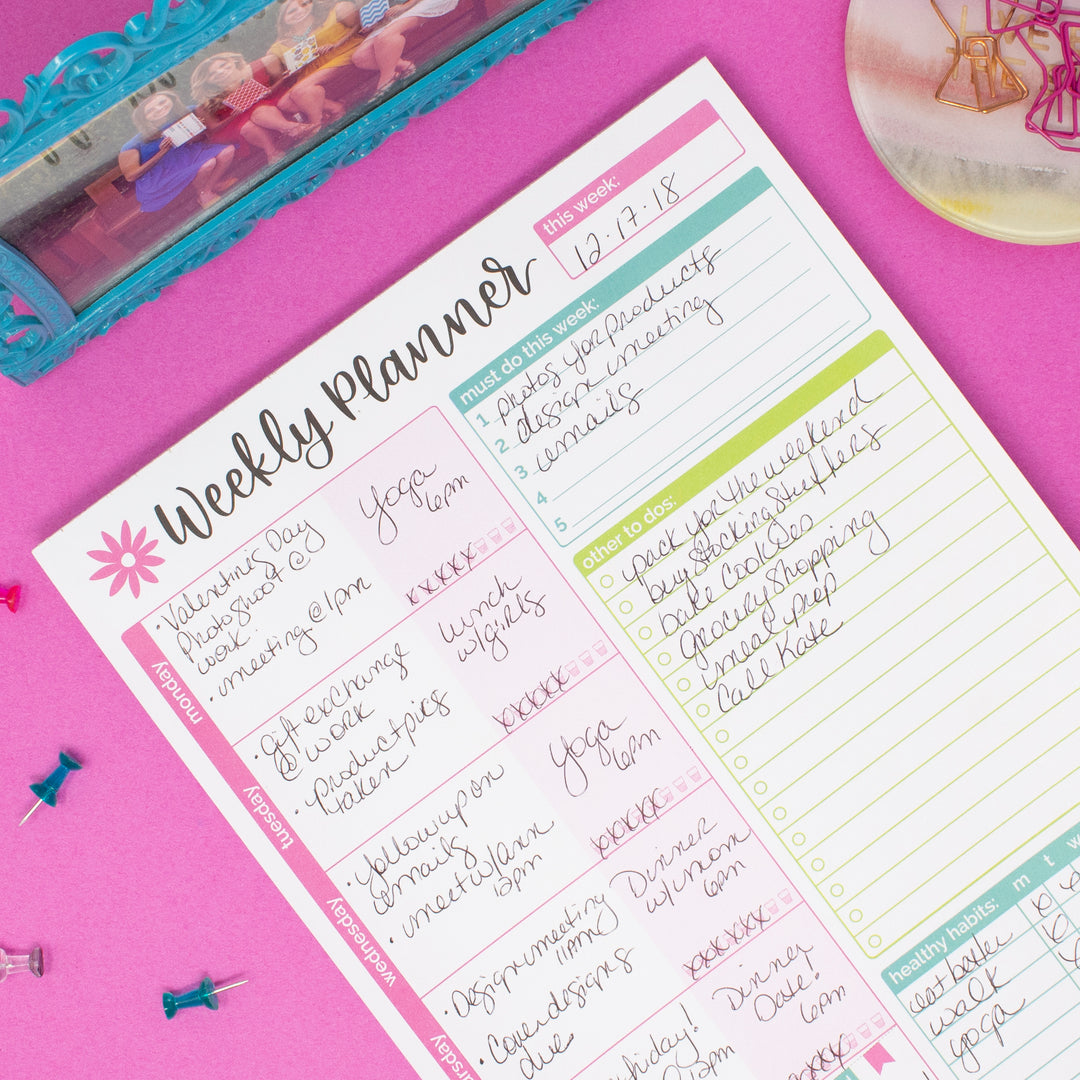 Weekly Planner
this week:
12·17·18
must do this week:
1 photos for products
2 design meeting
3 emails
4
5
other to dos:
pack for the weekend
buy stocking stuffers
bake cookies
grocery shopping
meal prep
Call Kate
monday
• Valentine's Day
photoshoot @
work
• meeting @ 1pm
Yoga
6pm
xxxxx
tuesday
• gift exchange
@ work
• Product pics
taken
lunch
w/girls
xxxxx
wednesday
• follow up on
emails
• meet w/Ann
12pm
Yoga
6pm
xxxxx
• Design meeting
11AM
• Cover designs
due
Dinner
w/mom
6pm
xxxxxx
12pm
Dinner
Date!
6pm
xxxx
healthy habits:
m t w
eat better
walk
yoga